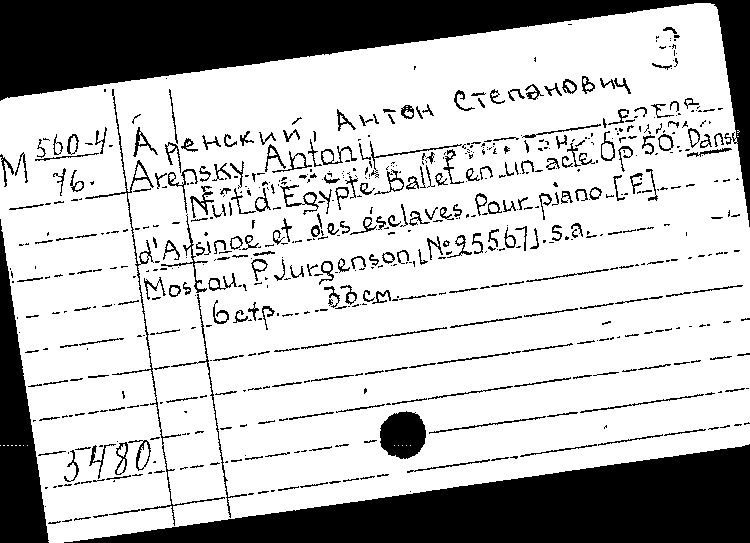 9
М 560-4.
76.
Аренский, Антон Степанович
Arensky, Antonij
Nuit d'Egypte. Ballet en un acte. Op 50. Danse
d'Arsinoé et des esclaves. Pour piano. [E]
Moscou, P. Jurgenson, [№ 25567]. s.a.
6 стр. 33 см.
3480.